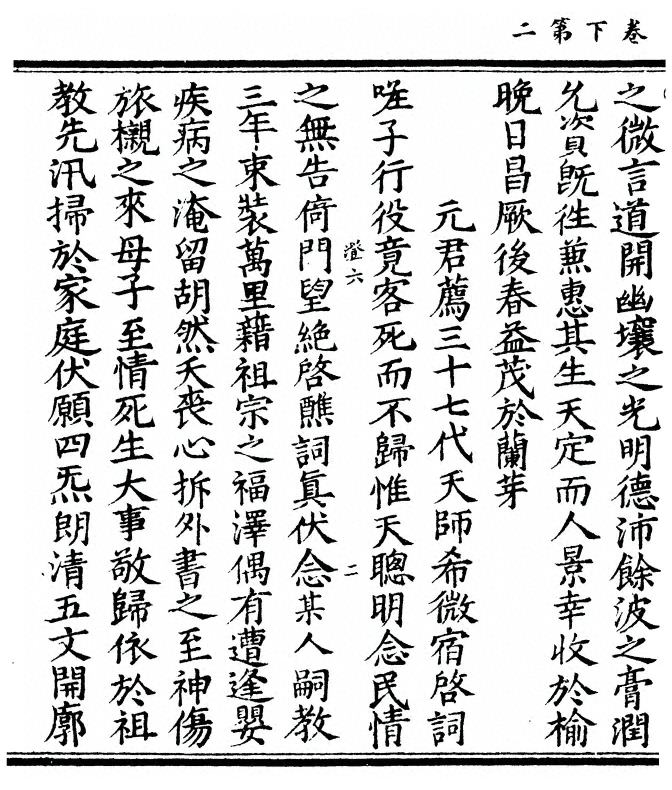 卷下第二
之微言道開幽壤之光明德沛餘波之膏潤
允資既徃蕪惠其生天定而人景幸收於榆
晚日昌厥後春益茂於蘭芽
元君薦三十七代天師希微宿啓詞
嗟子行役竟客死而不歸惟天聰明念民情
燈六
二
之無告倚門望絶啓醮詞眞伏念某人嗣教
三年束裝萬里藉祖宗之福澤偶有遭逢嬰
疾病之淹留胡然夭喪心拆外書之至神傷
旅櫬之來母子至情死生大事敬歸依於祖
教先汛掃於家庭伏願四炁朗清五文開廓